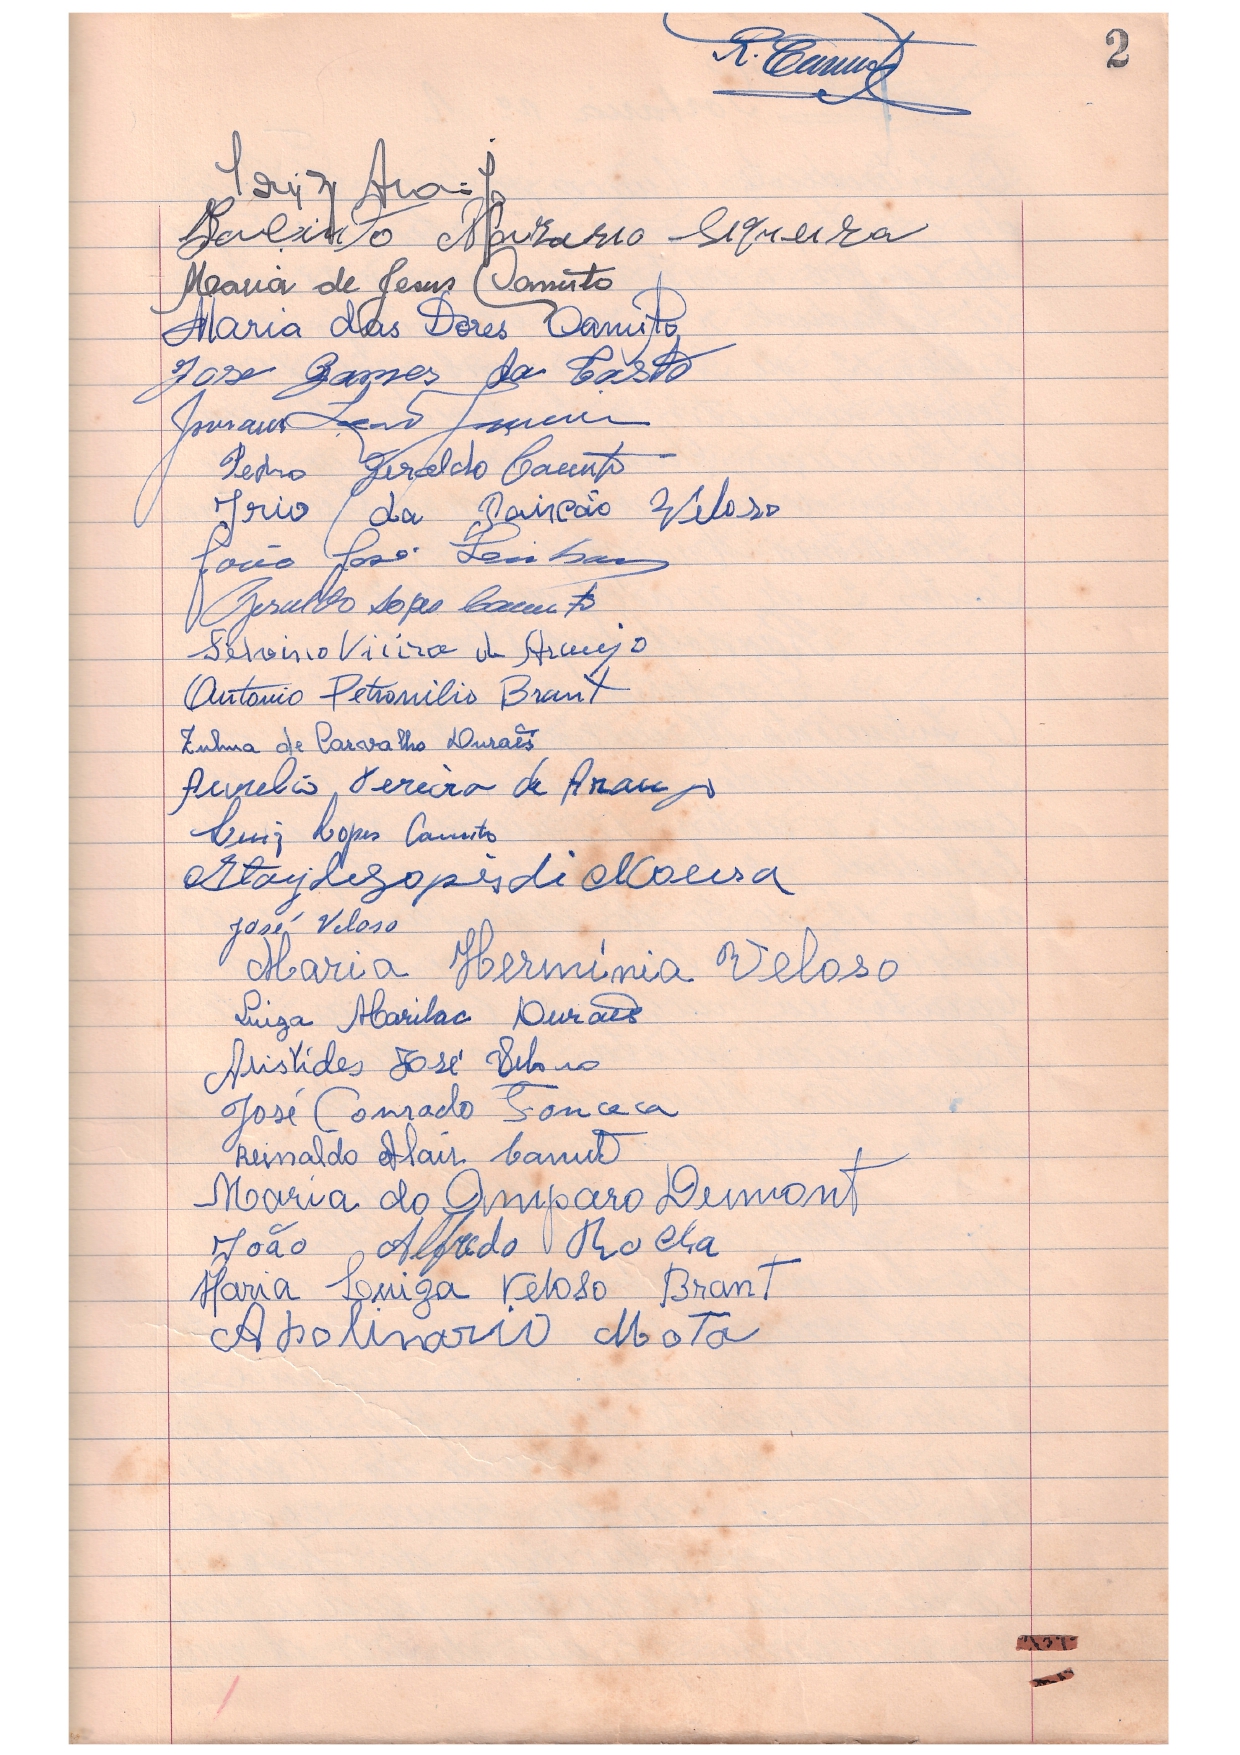 2
R. Canuto
Luiz Araujo
Maria de Jesus Canuto
Maria das Dores Canuto
José Gomes da Costa
Pedro Geraldo Canuto
Irio da Veloso
João José
Geraldo Lopes Canuto
Servino Vieira de Araujo
Antonio Petronilio Brant
Zulma de Carvalho Durães
Aurelio Pereira de Araujo
Luiz Lopes Canuto
José Veloso
Maria Hermínia Veloso
Luiza Marilac Durães
Aristides José Veloso
José Conrado Fonceca
Reinaldo Alair Canuto
Maria do Amparo Dumont
João Alfredo Rocha
Maria Luiza Veloso Brant
Apolinario Mota